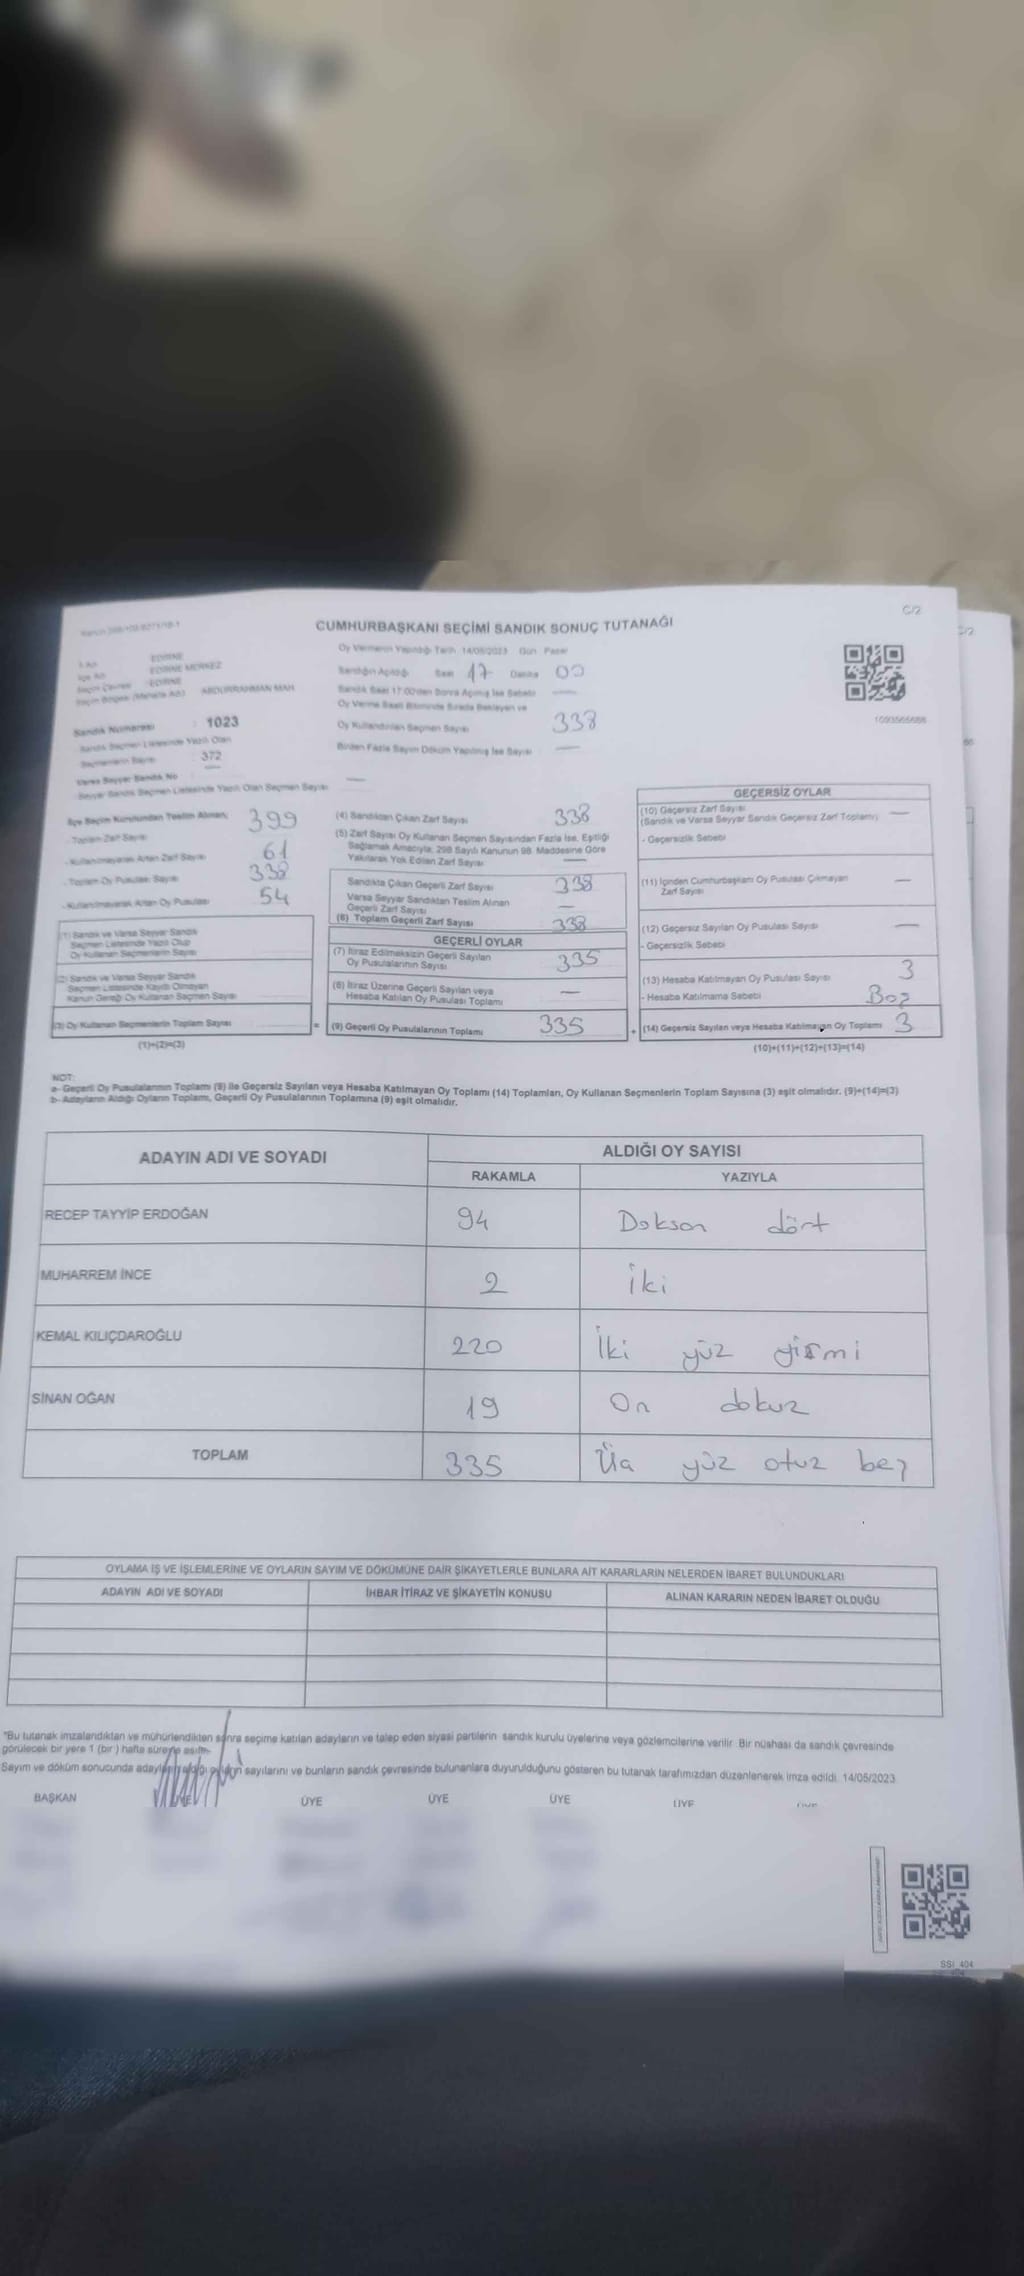 C/2
CUMHURBAŞKANI SEÇİMİ SANDIK SONUÇ TUTANAĞI
Oy Vermenin Yapıldığı Tarih 14/05/2023 Gün Pazar
İli Adı EDİRNE
İlçe Adı EDİRNE MERKEZ
Seçim Çevresi EDİRNE
Seçim Bölgesi (Mahalle Adı) ABDURRAHMAN MAH.
Sandık Numarası : 1023
Sandık Seçmen Listesinde Yazılı Olan
Seçmenlerin Sayısı 372
Varsa Seyyar Sandık No —
Seyyar Sandık Seçmen Listesinde Yazılı Olan Seçmen Sayısı —
Sandığın Açıldığı Saat 17 Dakika 00
Sandık Saat 17:00'den Sonra Açılmış İse Sebebi —
Oy Verme Saati Bitiminde Sırada Bekleyen ve
Oy Kullandırılan Seçmen Sayısı 338
Birden Fazla Sayım Döküm Yapılmış İse Sayısı —
1093565688
İlçe Seçim Kurulundan Teslim Alınan;
- Toplam Zarf Sayısı 399
- Kullanılmayarak Artan Zarf Sayısı 61
- Toplam Oy Pusulası Sayısı 338
- Kullanılmayarak Artan Oy Pusulası 54
(1) Sandık ve Varsa Seyyar Sandık
Seçmen Listesinde Yazılı Olup
Oy Kullanan Seçmenlerin Sayısı
(2) Sandık ve Varsa Seyyar Sandık
Seçmen Listesinde Kayıtlı Olmayan
Kanun Gereği Oy Kullanan Seçmen Sayısı
(3) Oy Kullanan Seçmenlerin Toplam Sayısı =
(1)+(2)=(3)
(4) Sandıktan Çıkan Zarf Sayısı 338
(5) Zarf Sayısı Oy Kullanan Seçmen Sayısından Fazla İse, Eşitliği
Sağlamak Amacıyla, 298 Sayılı Kanunun 98. Maddesine Göre
Yakılarak Yok Edilen Zarf Sayısı —
Sandıkta Çıkan Geçerli Zarf Sayısı 338
Varsa Seyyar Sandıktan Teslim Alınan
Geçerli Zarf Sayısı —
(6) Toplam Geçerli Zarf Sayısı 338
GEÇERLİ OYLAR
(7) İtiraz Edilmeksizin Geçerli Sayılan
Oy Pusulalarının Sayısı 335
(8) İtiraz Üzerine Geçerli Sayılan veya
Hesaba Katılan Oy Pusulası Toplamı —
(9) Geçerli Oy Pusulalarının Toplamı 335 +
GEÇERSİZ OYLAR
(10) Geçersiz Zarf Sayısı —
(Sandık ve Varsa Seyyar Sandık Geçersiz Zarf Toplamı)
- Geçersizlik Sebebi
(11) İçinden Cumhurbaşkanı Oy Pusulası Çıkmayan
Zarf Sayısı —
(12) Geçersiz Sayılan Oy Pusulası Sayısı —
- Geçersizlik Sebebi
(13) Hesaba Katılmayan Oy Pusulası Sayısı 3
- Hesaba Katılmama Sebebi Boş
(14) Geçersiz Sayılan veya Hesaba Katılmayan Oy Toplamı 3
(10)+(11)+(12)+(13)=(14)
NOT:
a- Geçerli Oy Pusulalarının Toplamı (9) ile Geçersiz Sayılan veya Hesaba Katılmayan Oy Toplamı (14) Toplamları, Oy Kullanan Seçmenlerin Toplam Sayısına (3) eşit olmalıdır. (9)+(14)=(3)
b- Adayların Aldığı Oyların Toplamı, Geçerli Oy Pusulalarının Toplamına (9) eşit olmalıdır.
ADAYIN ADI VE SOYADI ALDIĞI OY SAYISI
RAKAMLA YAZIYLA
RECEP TAYYİP ERDOĞAN 94 Doksan dört
MUHARREM İNCE 2 İki
KEMAL KILIÇDAROĞLU 220 İki yüz yirmi
SİNAN OĞAN 19 On dokuz
TOPLAM 335 Üç yüz otuz beş
OYLAMA İŞ VE İŞLEMLERİNE VE OYLARIN SAYIM VE DÖKÜMÜNE DAİR ŞİKAYETLERLE BUNLARA AİT KARARLARIN NELERDEN İBARET BULUNDUKLARI
ADAYIN ADI VE SOYADI İHBAR İTİRAZ VE ŞİKAYETİN KONUSU ALINAN KARARIN NEDEN İBARET OLDUĞU
*Bu tutanak imzalandıktan ve mühürlendikten sonra seçime katılan adayların ve talep eden siyasi partilerin sandık kurulu üyelerine veya gözlemcilerine verilir. Bir nüshası da sandık çevresinde
görülecek bir yere 1 (bir) hafta süreyle asılır.
Sayım ve döküm sonucunda adayların aldığı oyların sayılarını ve bunların sandık çevresinde bulunanlara duyurulduğunu gösteren bu tutanak tarafımızdan düzenlenerek imza edildi. 14/05/2023
BAŞKAN ÜYE ÜYE ÜYE ÜYE ÜYE ÜYE
SSI 404